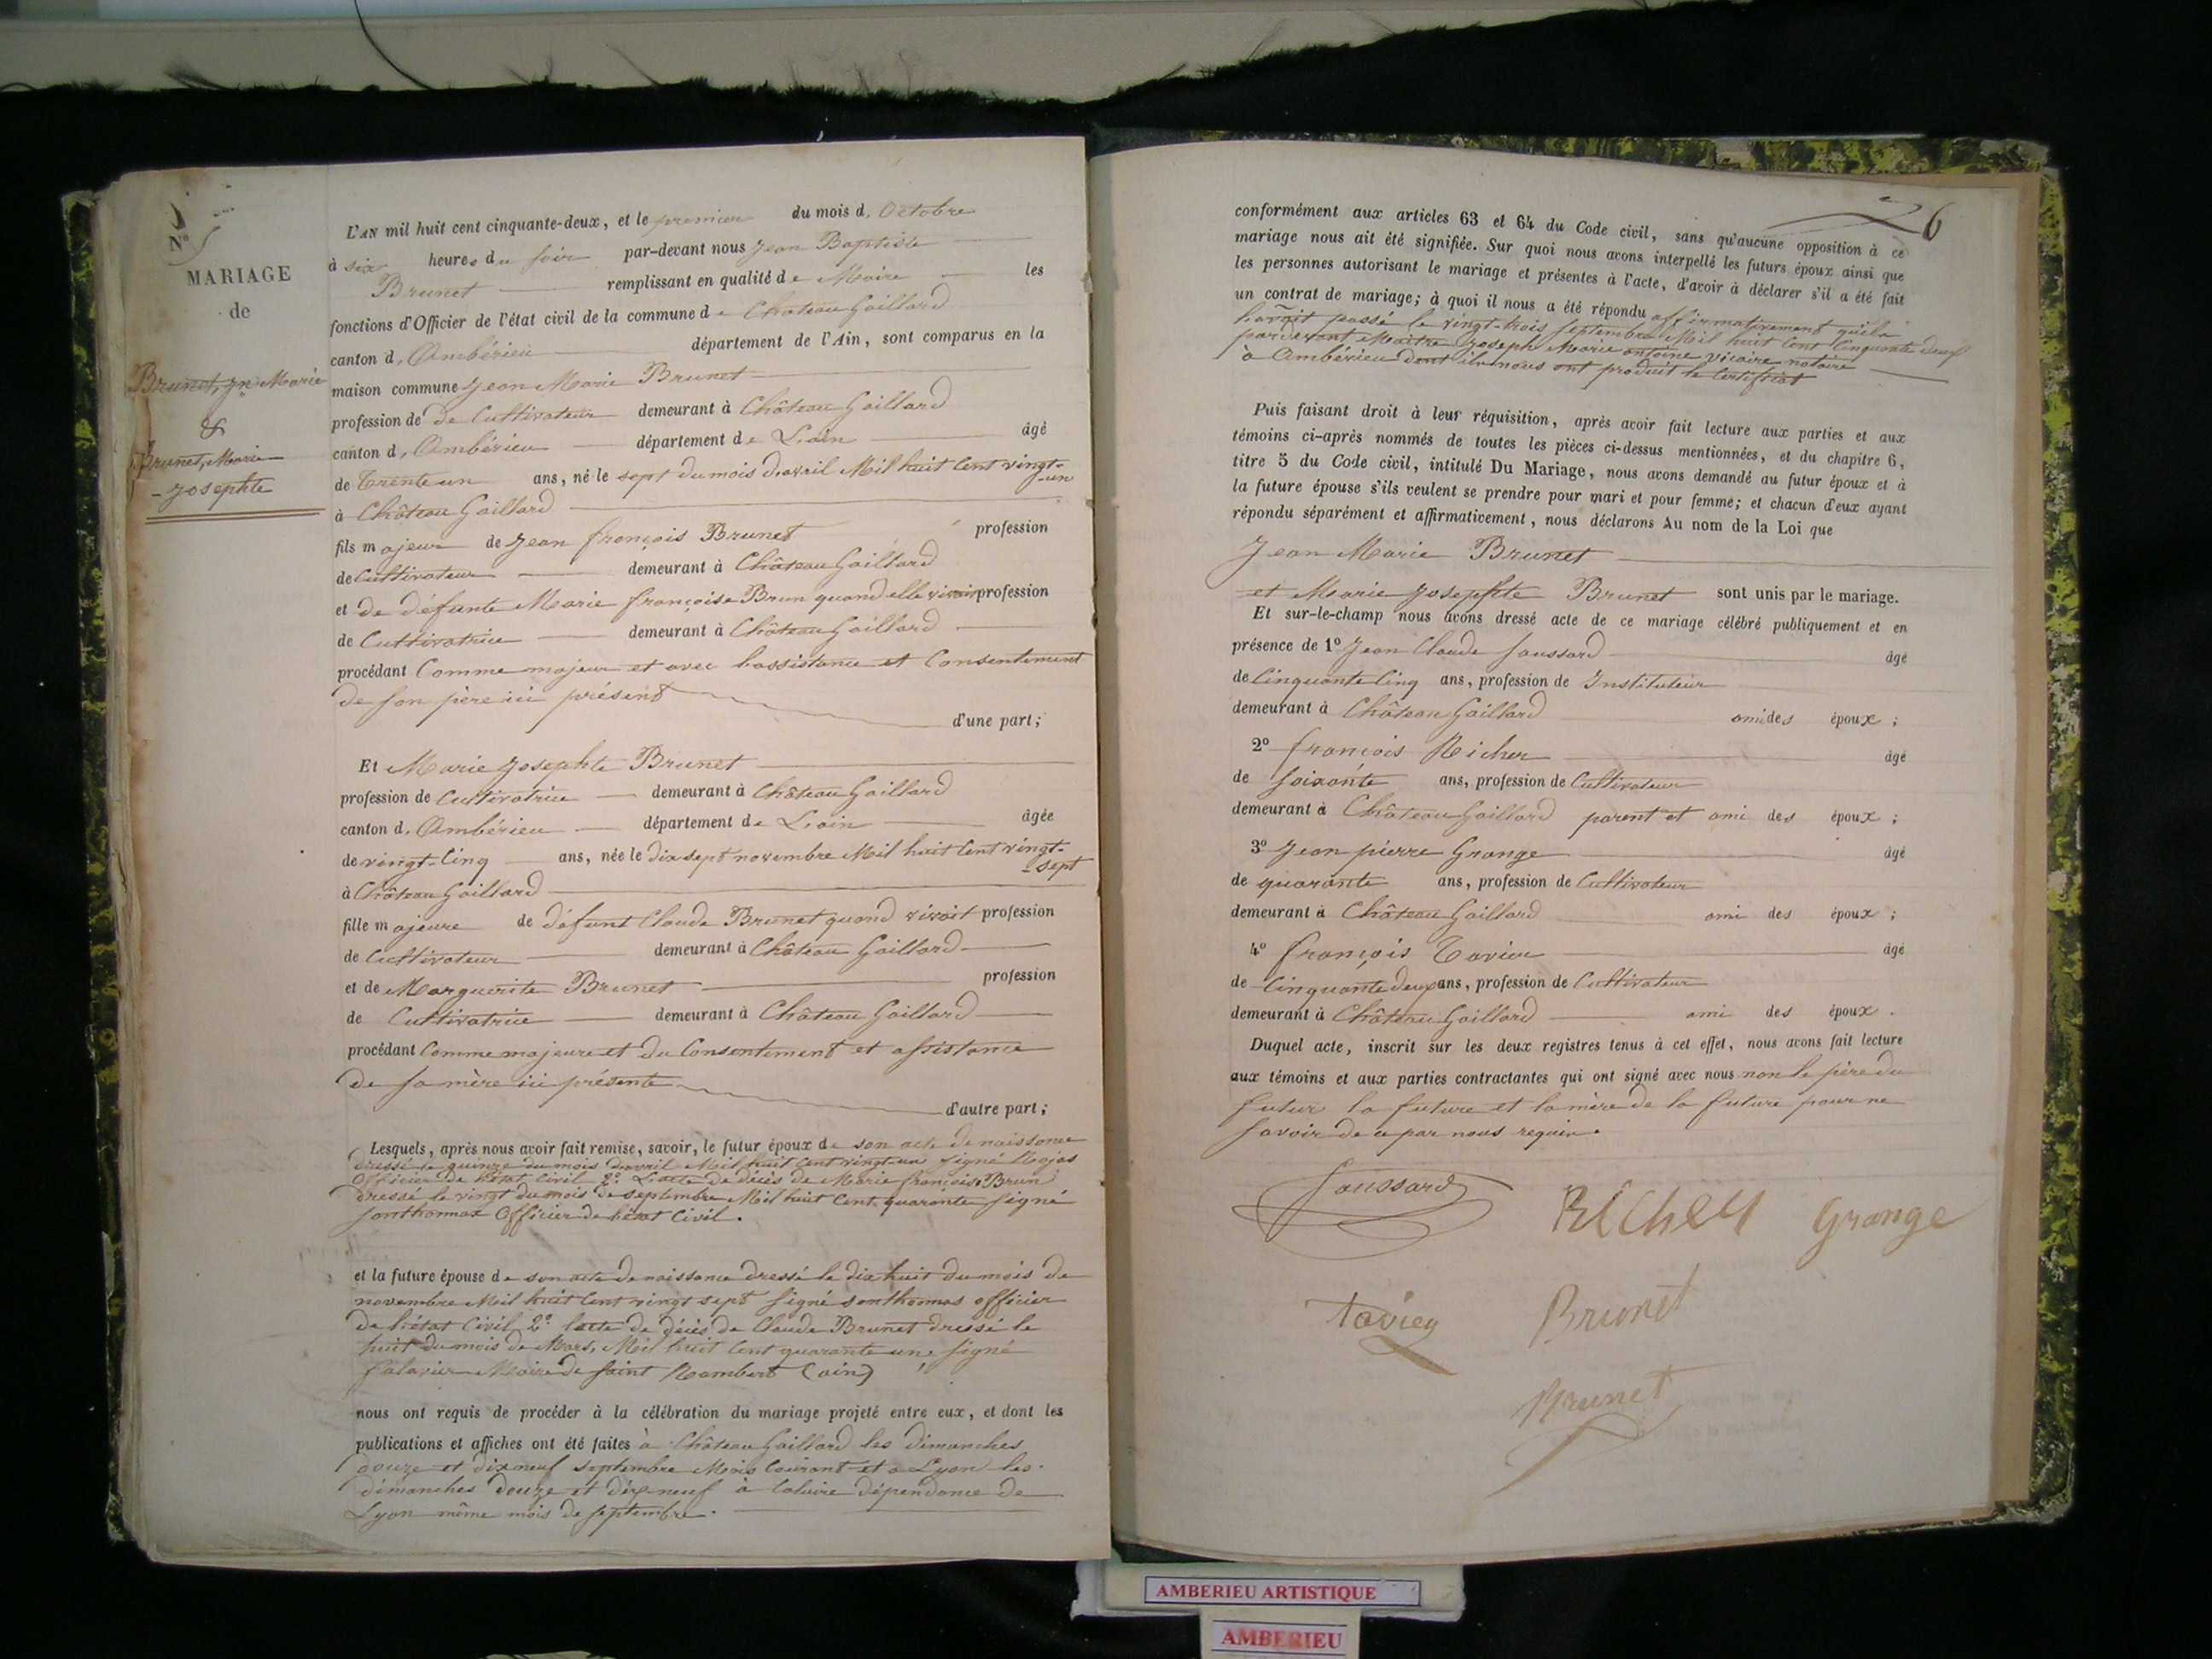 Nº 5
MARIAGE
de
Brunet, Jn Marie
&
Brunet, Marie
- Josephte
L'AN mil huit cent cinquante-deux, et le premier du mois d'Octobre
à six heures du soir par-devant nous Jean Baptiste
Brunet remplissant en qualité de Maire les
fonctions d'Officier de l'état civil de la commune de Château Gaillard
canton d'Ambérieu département de l'Ain, sont comparus en la
maison commune Jean Marie Brunet
profession de de Cultivateur demeurant à Château Gaillard
canton d'Ambérieu département de L'ain âgé
de Trente un ans, né le sept du mois d'avril Mil huit Cent vingt-
-un
à Château Gaillard
fils majeur de Jean françois Brunet profession
de Cultivateur demeurant à Château Gaillard
et de défunte Marie françoise Brun quand elle vivoit profession
de Cultivatrice demeurant à Château Gaillard
procédant Comme majeur et avec l'assistance et Consentement
de son père ici présent
d'une part;
Et Marie Josephte Brunet
profession de Cultivatrice demeurant à Château Gaillard
canton d'Ambérieu département de L'ain âgée
de vingt-Cinq ans, née le dix sept novembre Mil huit Cent vingt-
-sept
à Château Gaillard
fille majeure de défunt Claude Brunet quand vivoit profession
de Cultivateur demeurant à Château Gaillard
et de Marguerite Brunet profession
de Cultivatrice demeurant à Château Gaillard
procédant Comme majeure et du Consentement et assistance
de sa mère ici présente
d'autre part;
Lesquels, après nous avoir fait remise, savoir, le futur époux de son acte de naissance
dressé le quinze du mois d'avril Mil huit Cent vingt-un signé
Officier de l'état Civil 2º L'acte de décès de Marie françoise Brun
dressé le vingt du mois de septembre Mil huit Cent quarante signé
Officier de l'état Civil.
et la future épouse de son acte de naissance dressé le dix huit du mois de
novembre Mil huit Cent vingt sept signé officier
de l'état Civil 2º l'acte de décès de Claude Brunet dressé le
huit du mois de Mars, Mil huit Cent quarante un, signé
Maire de Saint Rambert (ain)
nous ont requis de procéder à la célébration du mariage projeté entre eux, et dont les
publications et affiches ont été faites à Château Gaillard les dimanches
douze et dix neuf septembre Mois Courant et a Lyon les
dimanches douze et dix neuf à Caluire dépendance de
Lyon même mois de septembre.
26
conformément aux articles 63 et 64 du Code civil, sans qu'aucune opposition à ce
mariage nous ait été signifiée. Sur quoi nous avons interpellé les futurs époux ainsi que
les personnes autorisant le mariage et présentes à l'acte, d'avoir à déclarer s'il a été fait
un contrat de mariage; à quoi il nous a été répondu affirmativement qu'ils
l'avoit passé le vingt-trois septembre Mil huit Cent Cinquante deux
pardevant Maître Joseph Marie antoine vicaire notaire
a Ambérieu dont ils nous ont produit le Certificat
Puis faisant droit à leur réquisition, après avoir fait lecture aux parties et aux
témoins ci-après nommés de toutes les pièces ci-dessus mentionnées, et du chapitre 6,
titre 5 du Code civil, intitulé Du Mariage, nous avons demandé au futur époux et à
la future épouse s'ils veulent se prendre pour mari et pour femme; et chacun d'eux ayant
répondu séparément et affirmativement, nous déclarons Au nom de la Loi que
Jean Marie Brunet
et Marie Josephte Brunet sont unis par le mariage.
Et sur-le-champ nous avons dressé acte de ce mariage célébré publiquement et en
présence de 1º Jean Claude Soussard âgé
de Cinquante Cinq ans, profession de Instituteur
demeurant à Château Gaillard ami des époux;
2º françois Richer âgé
de soixante ans, profession de Cultivateur
demeurant à Château Gaillard parent et ami des époux;
3º Jean pierre Grange âgé
de quarante ans, profession de Cultivateur
demeurant à Château Gaillard ami des époux;
4º françois Tavier âgé
de Cinquante deux ans, profession de Cultivateur
demeurant à Château Gaillard ami des époux.
Duquel acte, inscrit sur les deux registres tenus à cet effet, nous avons fait lecture
aux témoins et aux parties contractantes qui ont signé avec nous non le père du
futur la future et la mère de la future pour ne
savoir de ce par nous requis.
Soussard Richer Grange
Tavier Brunet
Brunet
AMBERIEU ARTISTIQUE
AMBERIEU